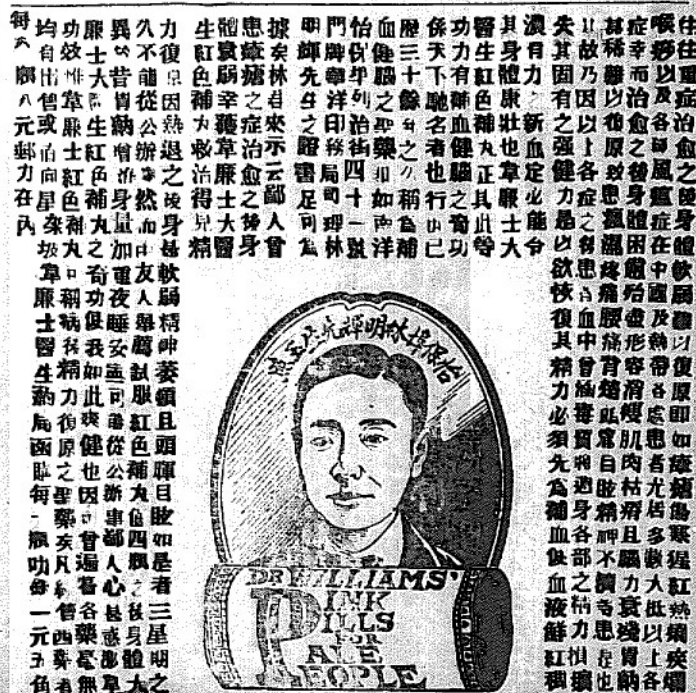 往往重症治愈之後身體軟弱難以復原即如瘧傷寒猩紅熱爛
喉痧以及各種風症在中國及熱帶各處患者尤居多數大低以上各
症幸而治愈之後身體困憊殆盡形容消瘦肌肉枯瘠且腦力衰殘胃納
甚稀難以復原致患瘋濕疼痛腰痛背目眩精神不濟等患也
其故乃因以上各症之後患者血中曾蘊毒質將週身各部之精力損壞
失其固有之强健力是以欲恢復其精力必須先為補血使血液鮮紅稠
濃有力之新血定必能令
其身體康壯也韋廉士大
醫生紅色補丸正具此等
功力有補血健腦之奇功
係天下馳名者也行世已
歷三十餘年之久稱為補
血健腦之聖藥即如南洋
怡保埠列治街四十一號
門牌華洋印務局司理林
明輝先生之證書足可為
據矣林君來示云鄙人曾
患瘧之症治愈之後身
體衰弱幸獲韋廉士大醫
生紅色補丸救治得見精
力復原因熱退之後身甚軟弱精神萎頓且頭暉目眩如是者三星期之
久不能從公辦事然而由友人舉薦試服紅色補丸僅四瓶之後身體大
異於昔胃納增進身量加重夜睡安適可再從公辦事鄙人心甚感激韋
廉士大醫生紅色補丸之奇功使我如此爽健也因曾遍嘗各藥毫無
功效惟韋廉士紅色補丸可稱病後精力復原之聖藥矣凡經售西藥者
均有出售或函向星架坡韋廉士醫生藥局函購每一瓶一元五角
每六瓶八元郵力在內
怡保埠林明輝先生玉照
DR WILLIAMS'
PINK
PILLS
FOR
PALE
PEOPLE